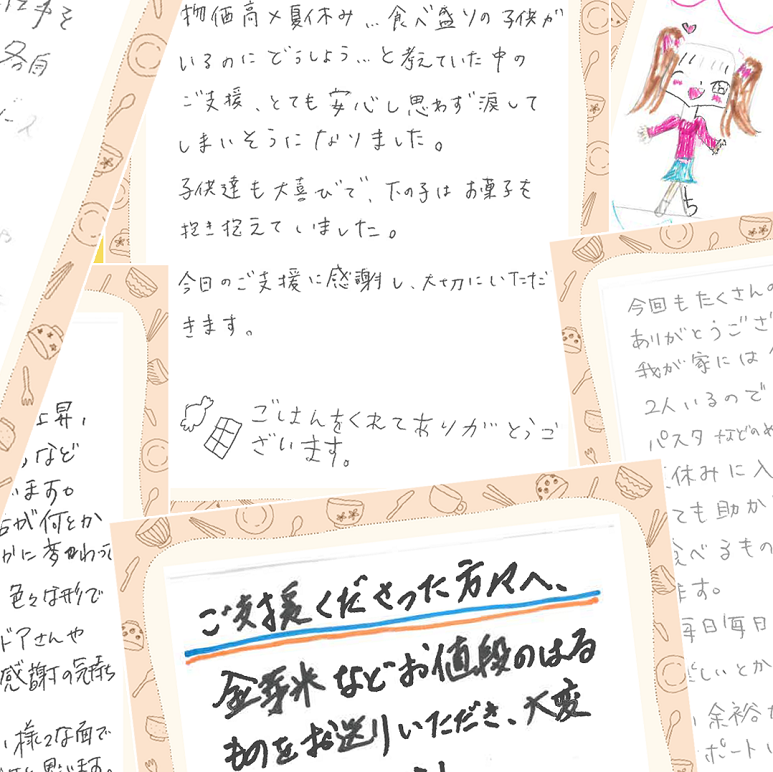 物価高×夏休み…食べ盛りの子供が
いるのにどうしよう…と考えていた中の
ご支援、とても安心し思わず涙して
しまいそうになりました。
子供達も大喜びで、下の子はお菓子を
抱き抱えていました。
今日のご支援に感謝し、大切にいただ
きます。
ごはんをくれてありがとうご
ざいます。
各自
上昇、
など
います。
が何とか
かに変わって
色々な形で
ドアさんや
感謝の気持ち
様々な面で
思います。
今回もたくさんの
ありがとうござ
我が家には
2人いるので
パスタなどのめ
休みに入
ても助か
食べるもの
ます。
毎日毎日
しいとか
余裕が
ポート
ご支援くださった方々へ、
金芽米などお値段のはる
ものをお送りいただき、大変